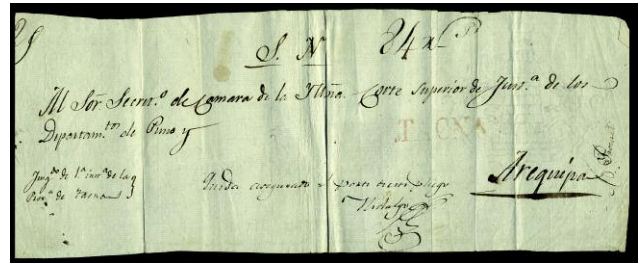 S. N.
24 rs
Al Sõr Secret.º de Camara de la Yltma. Corte Superior de Just.ª de los
Departam.tos de Puno y
Arequipa
Juzg.do de 1.ª inst.ª de la
Prov.ª de Tacna
Queda asegurado el porte
Hidalgo